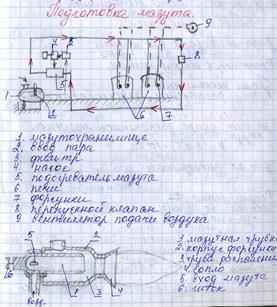 Подготовка мазута.
9
4
3
8
1
2
5
6
7
1. мазутохранилище
2. ввод пара
3. фильтр
4. насос
5. подогреватель мазута
6. печи
7. форсунки
8. перепускной клапан
9 вентилятор подачи воздуха
5
2
1. мазутная трубка
2. корпус форсунки
3. труба распыления
4. сопло
5. вход мазута
6. шток
6
1
3
4
возд.